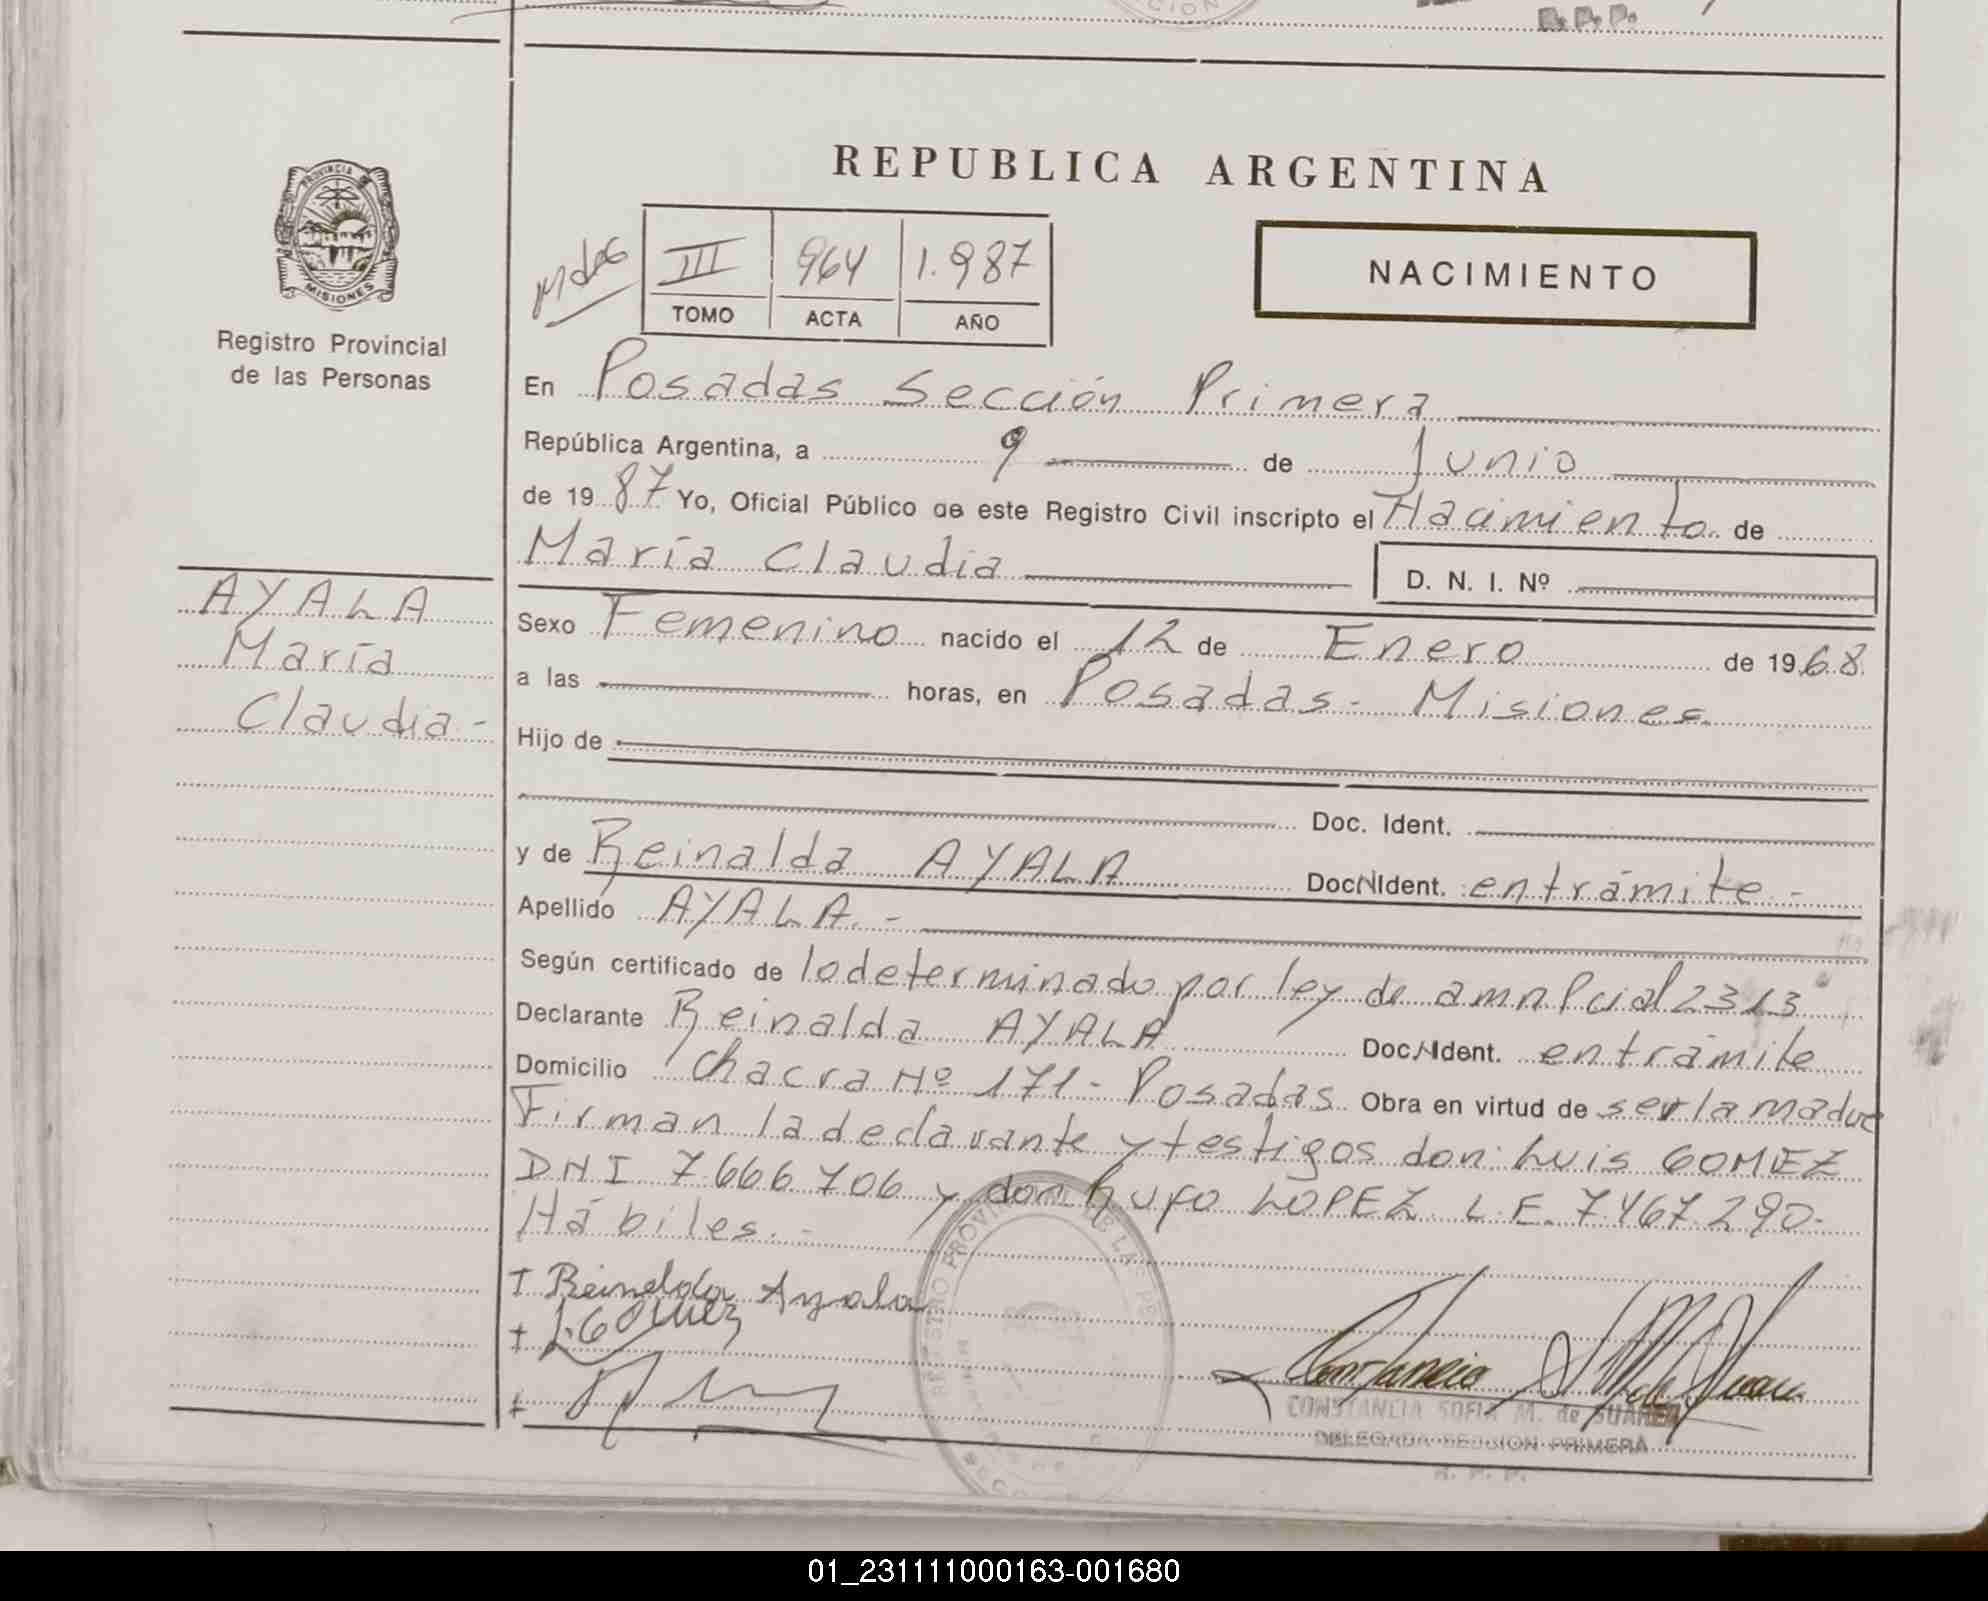 R. P. P.
REPUBLICA ARGENTINA
PROVINCIA DE
MISIONES
Registro Provincial
de las Personas
III 964 1.987
TOMO ACTA AÑO
NACIMIENTO
En Posadas Sección Primera
República Argentina, a 9 de Junio
de 1987 Yo, Oficial Público de este Registro Civil inscripto el Nacimiento de
María Claudia D. N. I. Nº
AYALA
María
Claudia -
Sexo Femenino nacido el 12 de Enero de 1968
a las horas, en Posadas - Misiones
Hijo de
Doc. Ident.
y de Reinalda AYALA Doc. Ident. entrámite.-
Apellido AYALA.-
Según certificado de lo determinado por ley de amn Pcial 2313
Declarante Reinalda AYALA Doc. Ident. entrámite
Domicilio Chacra Nº 171- Posadas Obra en virtud de ser la madre
Firman la declarante y testigos don: Luis GOMEZ
DNI 7.666.706 y don Rufo LOPEZ L.E. 7.467.290.-
Hábiles.-
Reinalda Ayala
L. Gomez
REGISTRO PROVINCIAL DE LAS
CONSTANCIA SOFIA M. de SUAREZ
DELEGADA SECCION PRIMERA
R. P. P.
01_231111000163-001680